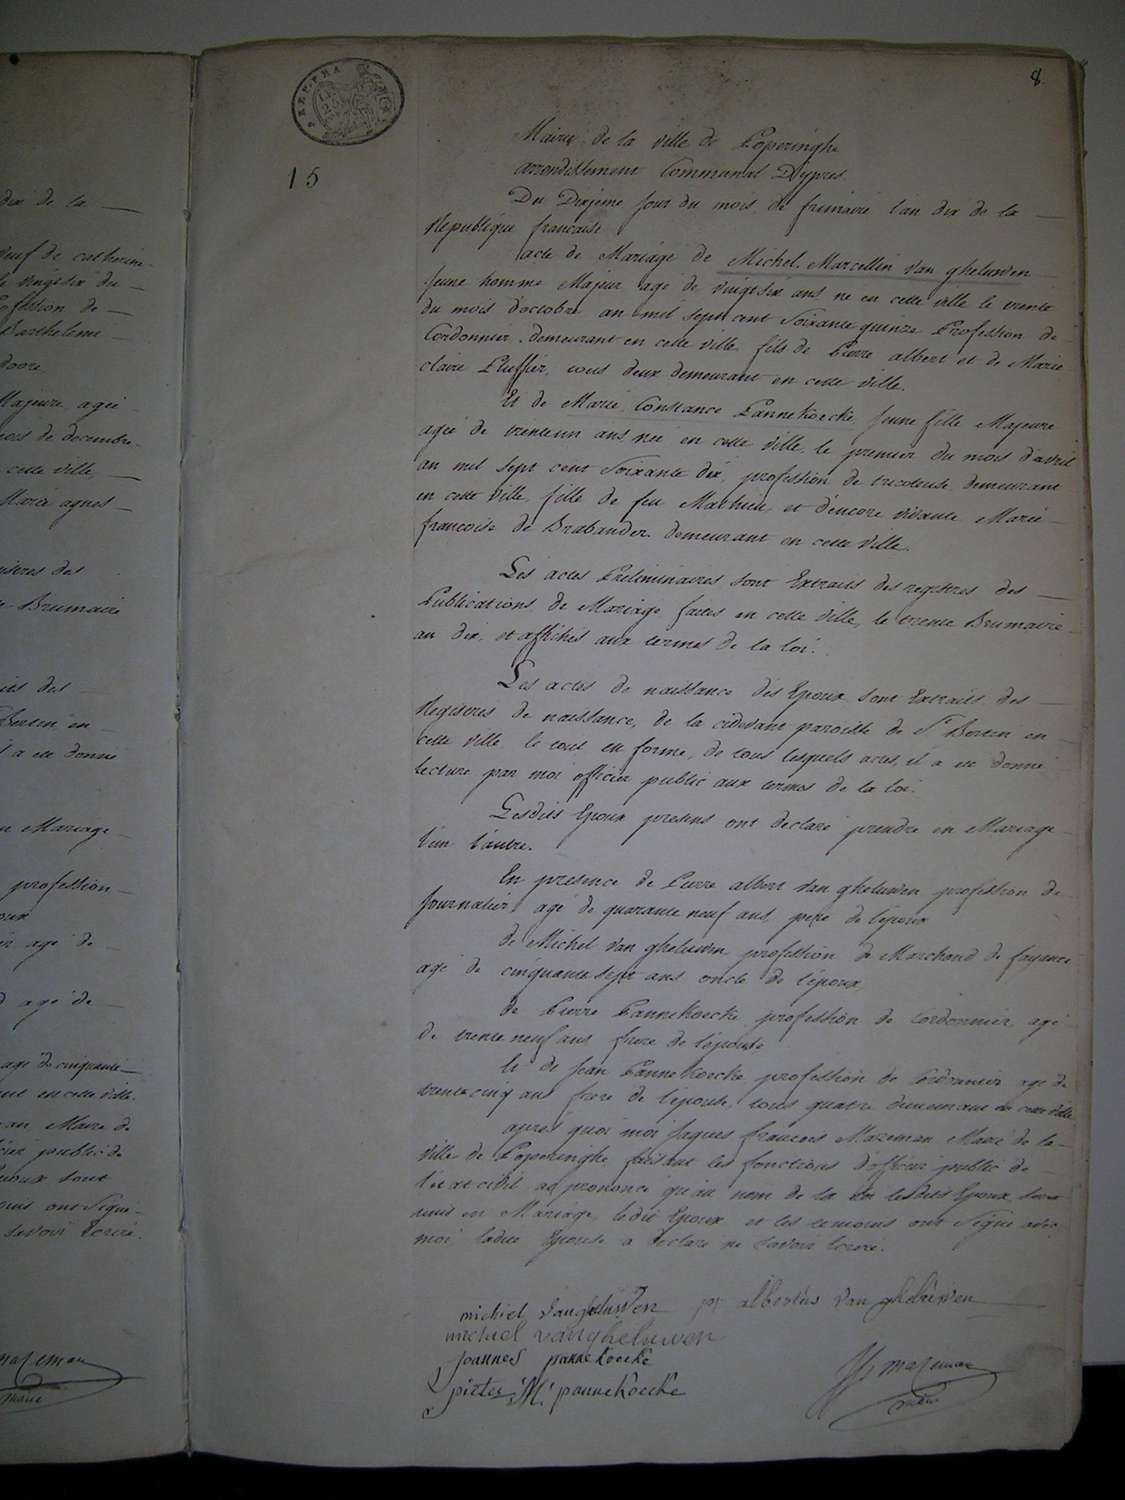 8
15
Mairie de la ville de Poperinghe
arrondissement Communal D'ypres.
Du Dixieme Jour du mois de frimaire l'an dix de la
Republique francaise
acte de Mariage de Michel Marcellin Van gheluwen
Jeune homme Majeur agé de vingt six ans né en cette ville le trente
du mois d'octobre an mil sept cent Soixante quinze Profession de
Cordonnier. demeurant en cette ville fils de Pierre albert et de Marie
claire tous deux demeurant en cette ville.
Et de Marie Constance Pannekoecke Jeune fille Majeure
agée de trente un ans née en cette ville, le premier du mois d'avril
an mil sept cent Soixante dix, profession de tricoteuse demeurant
en cette ville, fille de feu Mathieu et d'encore vivante Marie
francoise de Brabander. demeurant en cette ville.
Les actes Preliminaires sont Extraits des registres des
Publications de Mariage faites en cette ville, le trente Brumaire
an dix, et affichés aux termes de la loi.
Les actes de naissance des Epoux sont Extraits des
Registres de naissance, de la cidevant paroisse de St Bertin en
cette ville le tout en forme, de tous lesquels actes, il a eté donné
lecture par moi officier public aux termes de la loi.
Lesdits Epoux presens ont declaré prendre en Mariage
l'un l'autre.
En presence de Pierre albert Van gheluwen profession de
Journalier agé de quarante neuf ans, pere de l'epoux
de Michel Van gheluwen profession de Marchand de fayance
agé de cinquante sept ans oncle de l'epoux
de Pierre Pannekoecke profession de cordonnier agé
de trente neuf ans frere de l'epouse
Et de Jean Pannekoecke profession de Cordonnier agé de
trente cinq ans frere de l'epouse, tous quatre demeurant en cette ville
après quoi moi Jaques francois Mazeman Maire de la
ville de Poperinghe faisant les fonctions d'officier public de
l'etat civil, ai prononcé qu'au nom de la loi lesdits Epoux sont
unis en Mariage, ledit Epoux et les temoins ont Signé avec
moi ladite Epouse a declaré ne savoir Ecrire.
michiel Vangheluwen pr albertus Van gheluwen
michiel vangheluwen
Joannes pannekoecke
pieter M pannekoecke
mazeman
maire